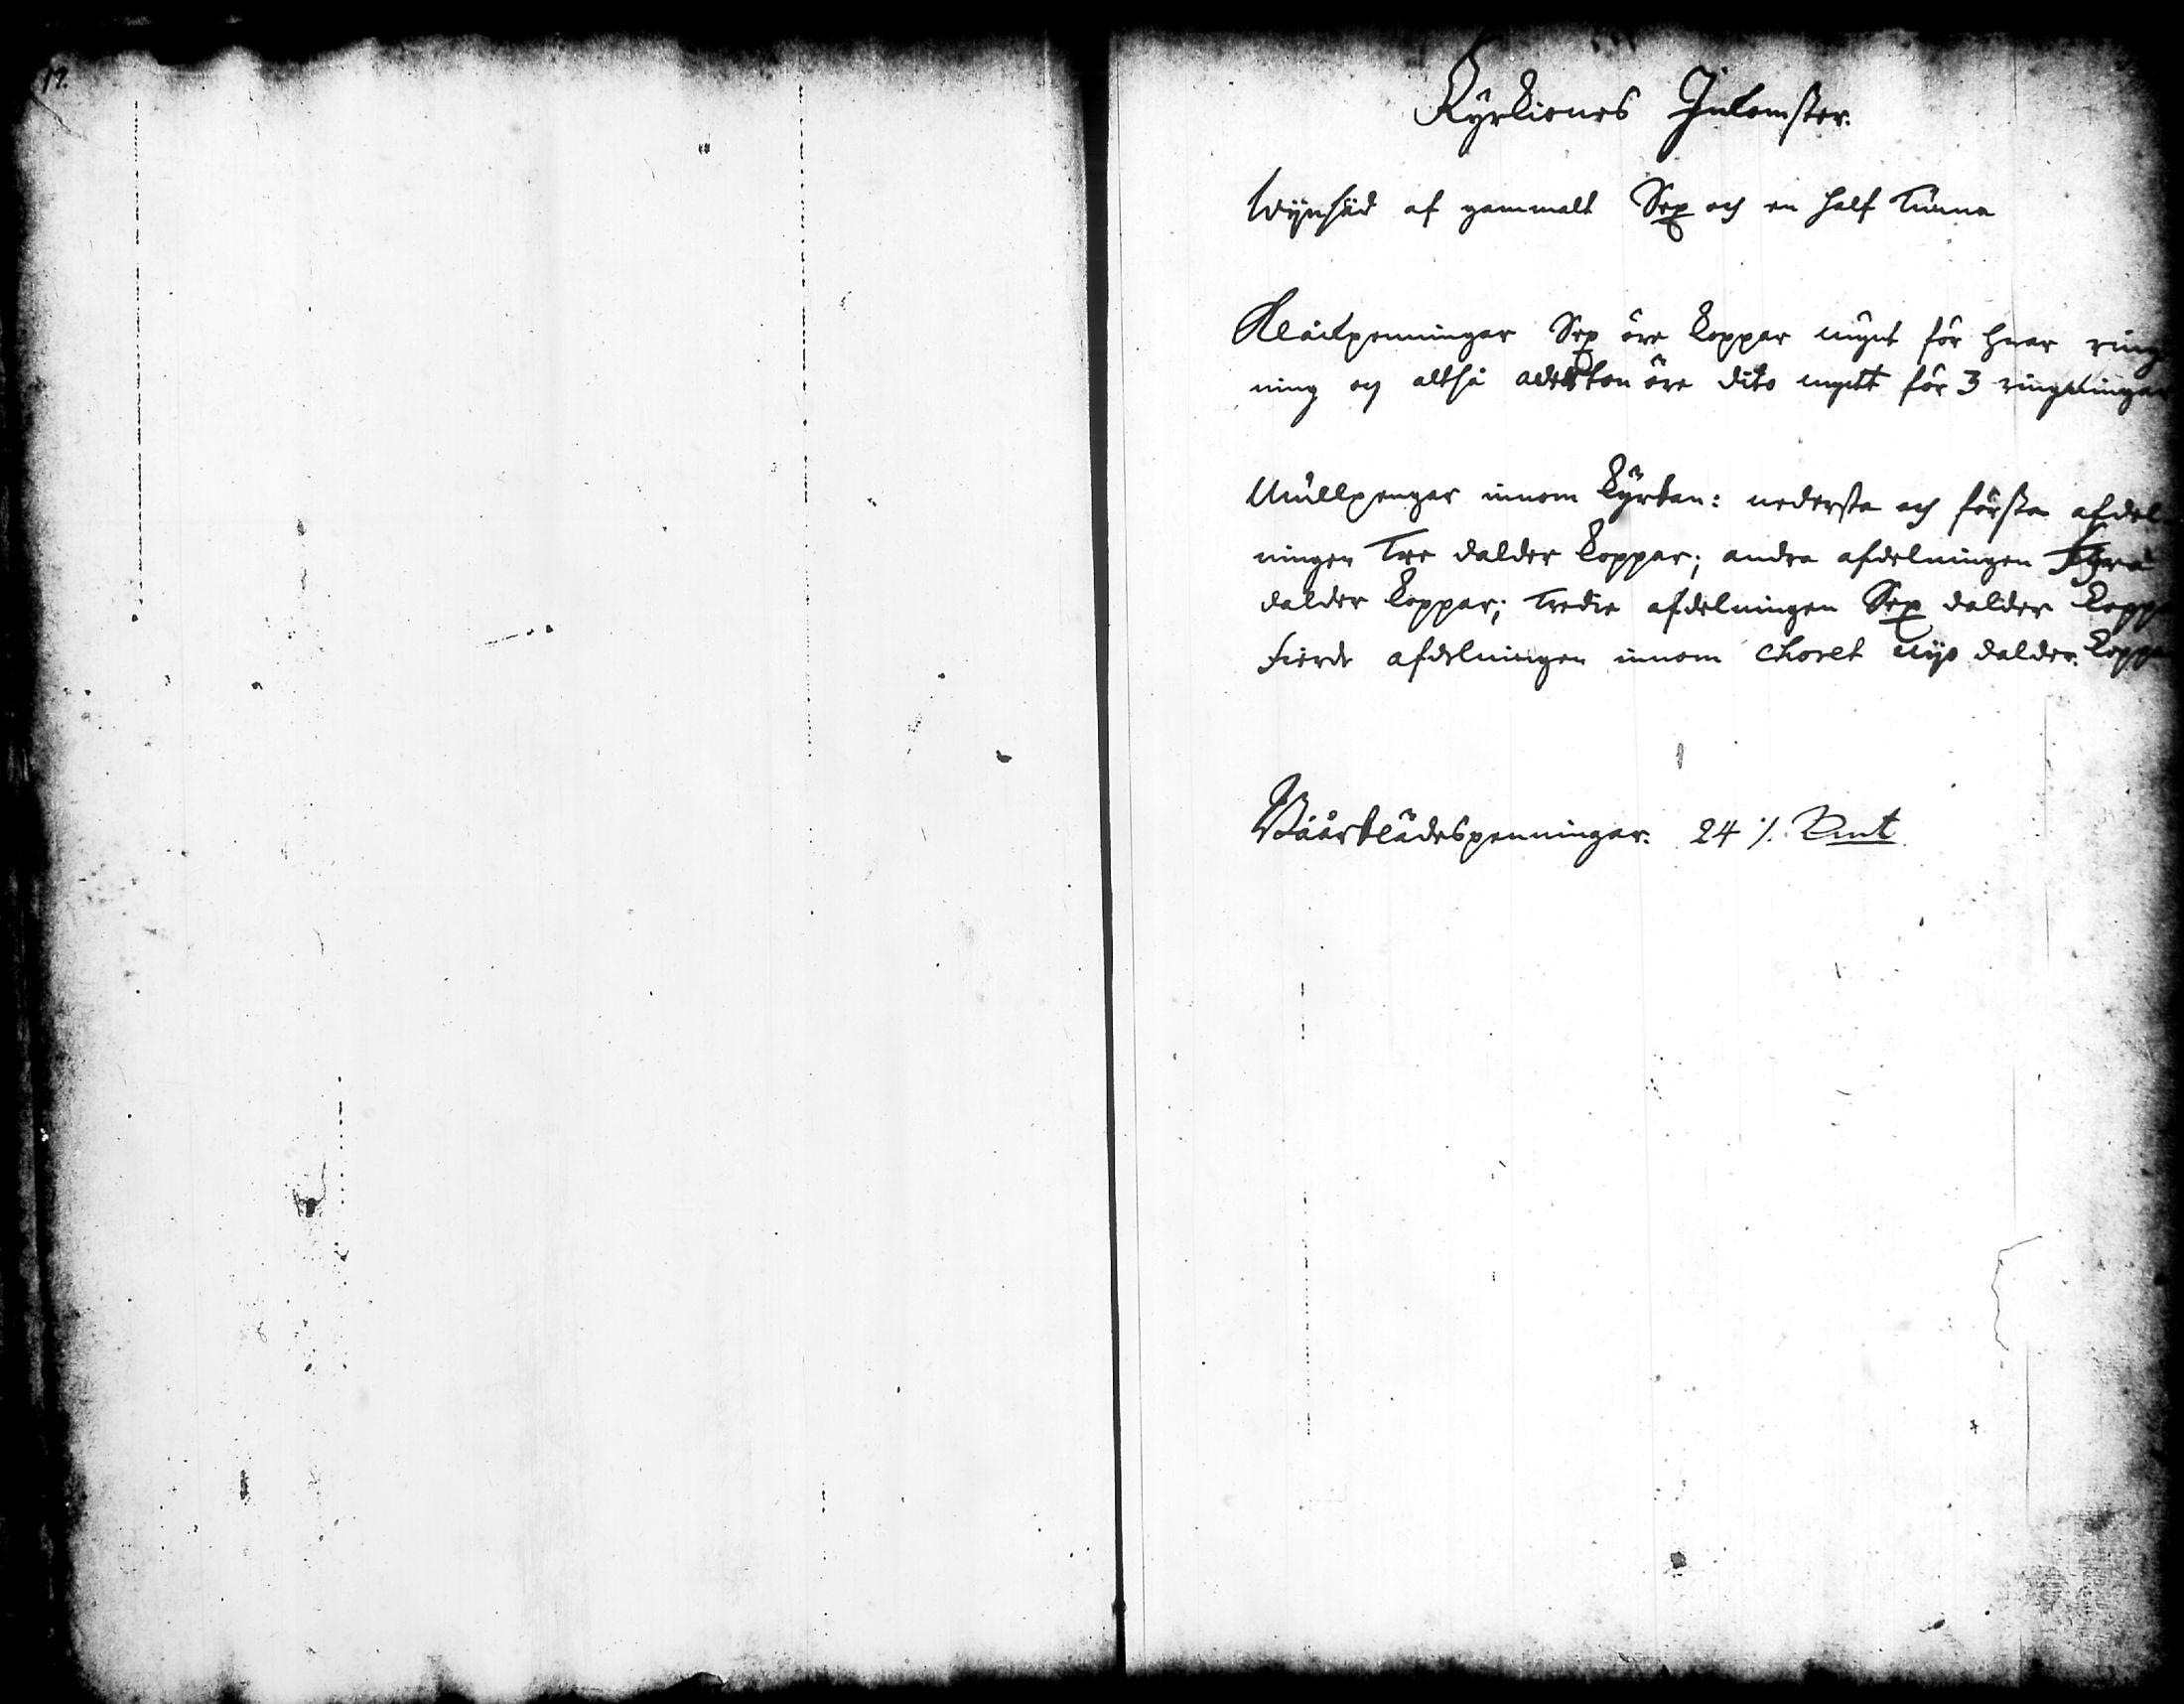 17.
Kyrkiones Inkomster.
Wijnsäd af gammalt Sex och en half Tunna
penningar Sex öre koppar mynt för hvar ring
ning och altså aderton öre dito mynt för 3 ringningar
Mullpengar innom kyrkan: nedersta och första afdel
ningen Tre daler koppar; andra afdelningen Fyra
daler koppar; Tredie afdelningen Sex daler kopp
Fierde afdelningen innom Choret Tijo daler kopp
Båårklädespenningar. 24 /. Kmt